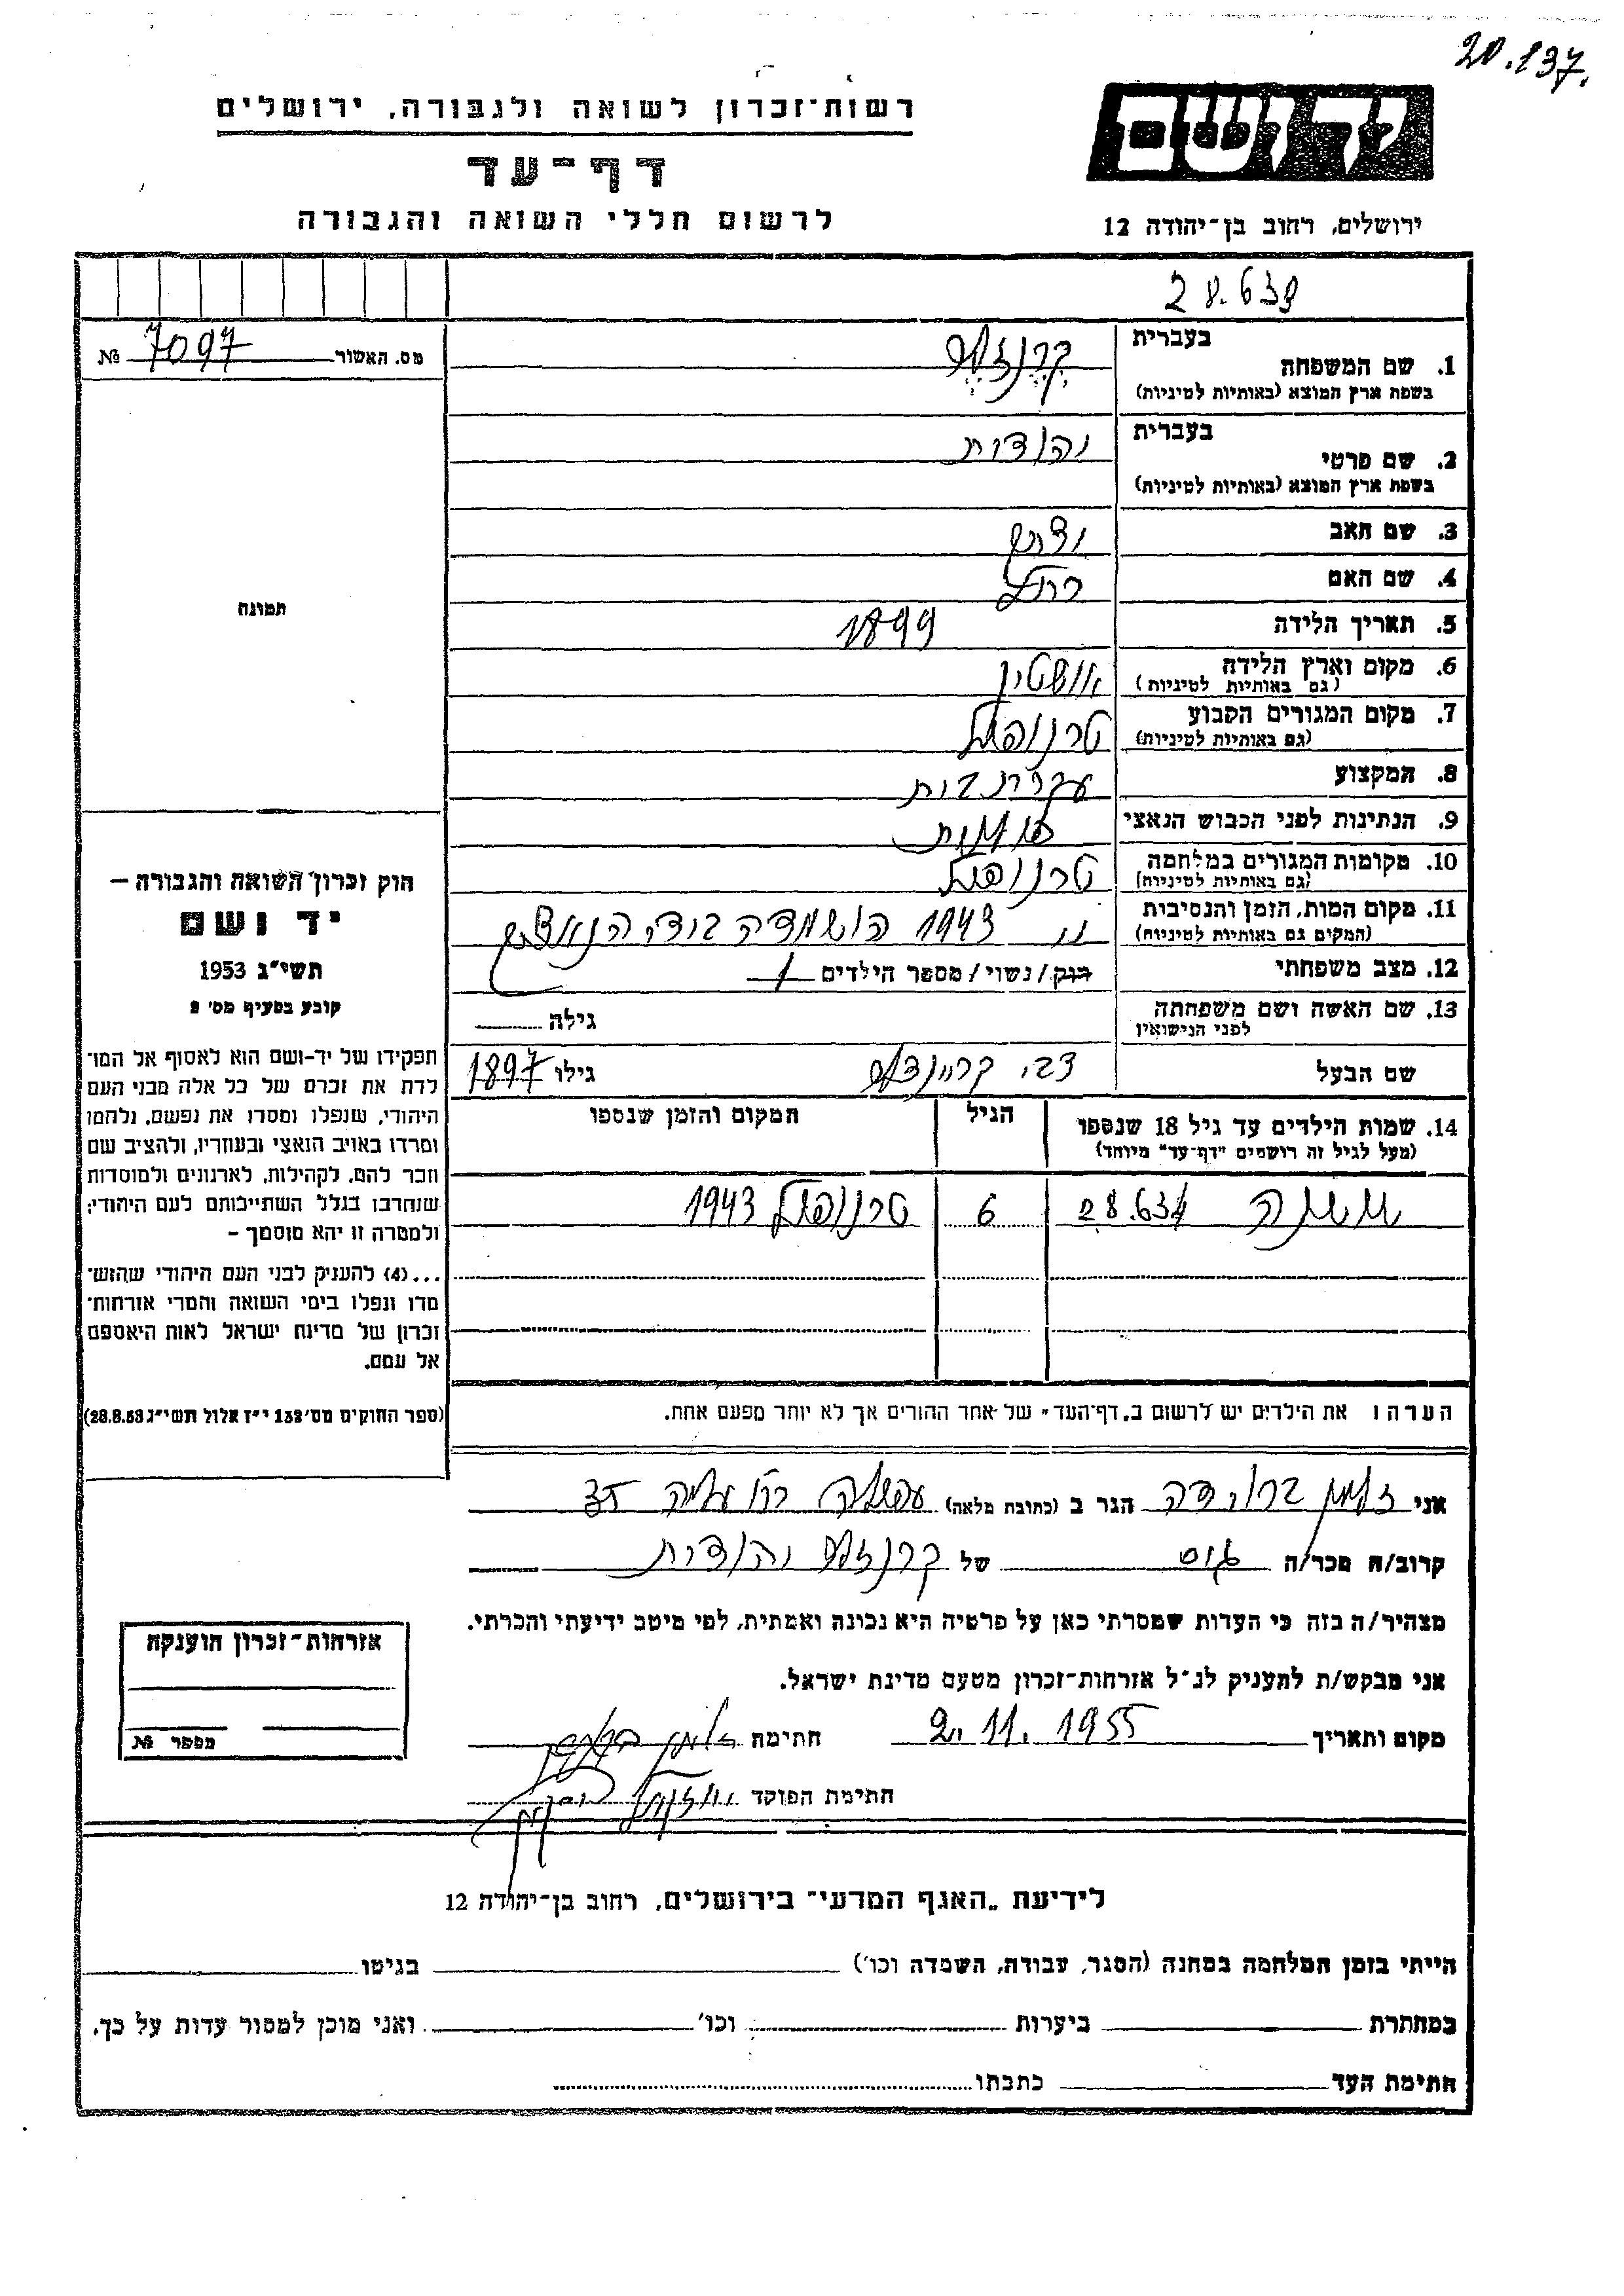 20.137.
רשות־זכרון לשואה ולגבורה, ירושלים
יד ושם
דף־עד
לרשום חללי השואה והגבורה
ירושלים, רחוב בן־יהודה 12
28.633
מס. האשור 7097 №
בעברית
1. שם המשפחה
בשפת ארץ המוצא (באותיות לטיניות)
בעברית יהודית
2. שם פרטי
בשפת ארץ המוצא (באותיות לטיניות)
3. שם האב
4. שם האם רחל
5. תאריך הלידה 1899
6. מקום וארץ הלידה
(גם באותיות לטיניות)
7. מקום המגורים הקבוע טרנופול
(גם באותיות לטיניות)
8. המקצוע עקרת בית
9. הנתינות לפני הכבוש הנאצי פולנית
10. מקומות המגורים במלחמה טרנופול
(גם באותיות לטיניות)
11. מקום המות, הזמן והנסיבות 1943 הושמדה בידי הנאצים
(המקום גם באותיות לטיניות)
12. מצב משפחתי רווק/נשוי/מספר הילדים 1
13. שם האשה ושם משפחתה גילה
לפני הנישואין
שם הבעל צבי גילו 1897
14. שמות הילדים עד גיל 18 שנספו הגיל המקום והזמן שנספו
(מעל לגיל זה רושמים "דף־עד" מיוחד)
28.634 6 טרנופול 1943
הערה: את הילדים יש לרשום ב„דף־העד" של אחד ההורים אך לא יותר מפעם אחת.
תמונה
חוק זכרון השואה והגבורה —
יד ושם
תשי"ג 1953
קובע בסעיף מס' 2
תפקידו של יד־ושם הוא לאסוף אל המו־
לדת את זכרם של כל אלה מבני העם
היהודי, שנפלו ומסרו את נפשם, נלחמו
ומרדו באויב הנאצי ובעוזריו, ולהציב שם
וזכר להם, לקהילות, לארגונים ולמוסדות
שנחרבו בגלל השתייכותם לעם היהודי;
ולמטרה זו יהא מוסמך —
...(4) להעניק לבני העם היהודי שהוש־
מדו ונפלו בימי השואה והמרי אזרחות־
זכרון של מדינת ישראל לאות היאספם
אל עמם.
(ספר החוקים מס' 132 י"ז אלול תשי"ג 28.8.53)
אני זלמן ברוידה הגר ב (כתובת מלאה) עפולה 35
קרוב/ה מכר/ה גיס של יהודית
מצהיר/ה בזה כי העדות שמסרתי כאן על פרטיה היא נכונה ואמתית, לפי מיטב ידיעתי והכרתי.
אני מבקש/ת להעניק לנ"ל אזרחות־זכרון מטעם מדינת ישראל.
מקום ותאריך 2.11.1955 חתימה
חתימת הפוקד
אזרחות־זכרון הוענקה
מספר №
לידיעת „האגף המדעי" בירושלים, רחוב בן־יהודה 12
הייתי בזמן המלחמה במחנה (הסגר, עבודה, השמדה וכו') בגיטו
במחתרת ביערות וכו' ואני מוכן למסור עדות על כך.
חתימת העד כתבתו